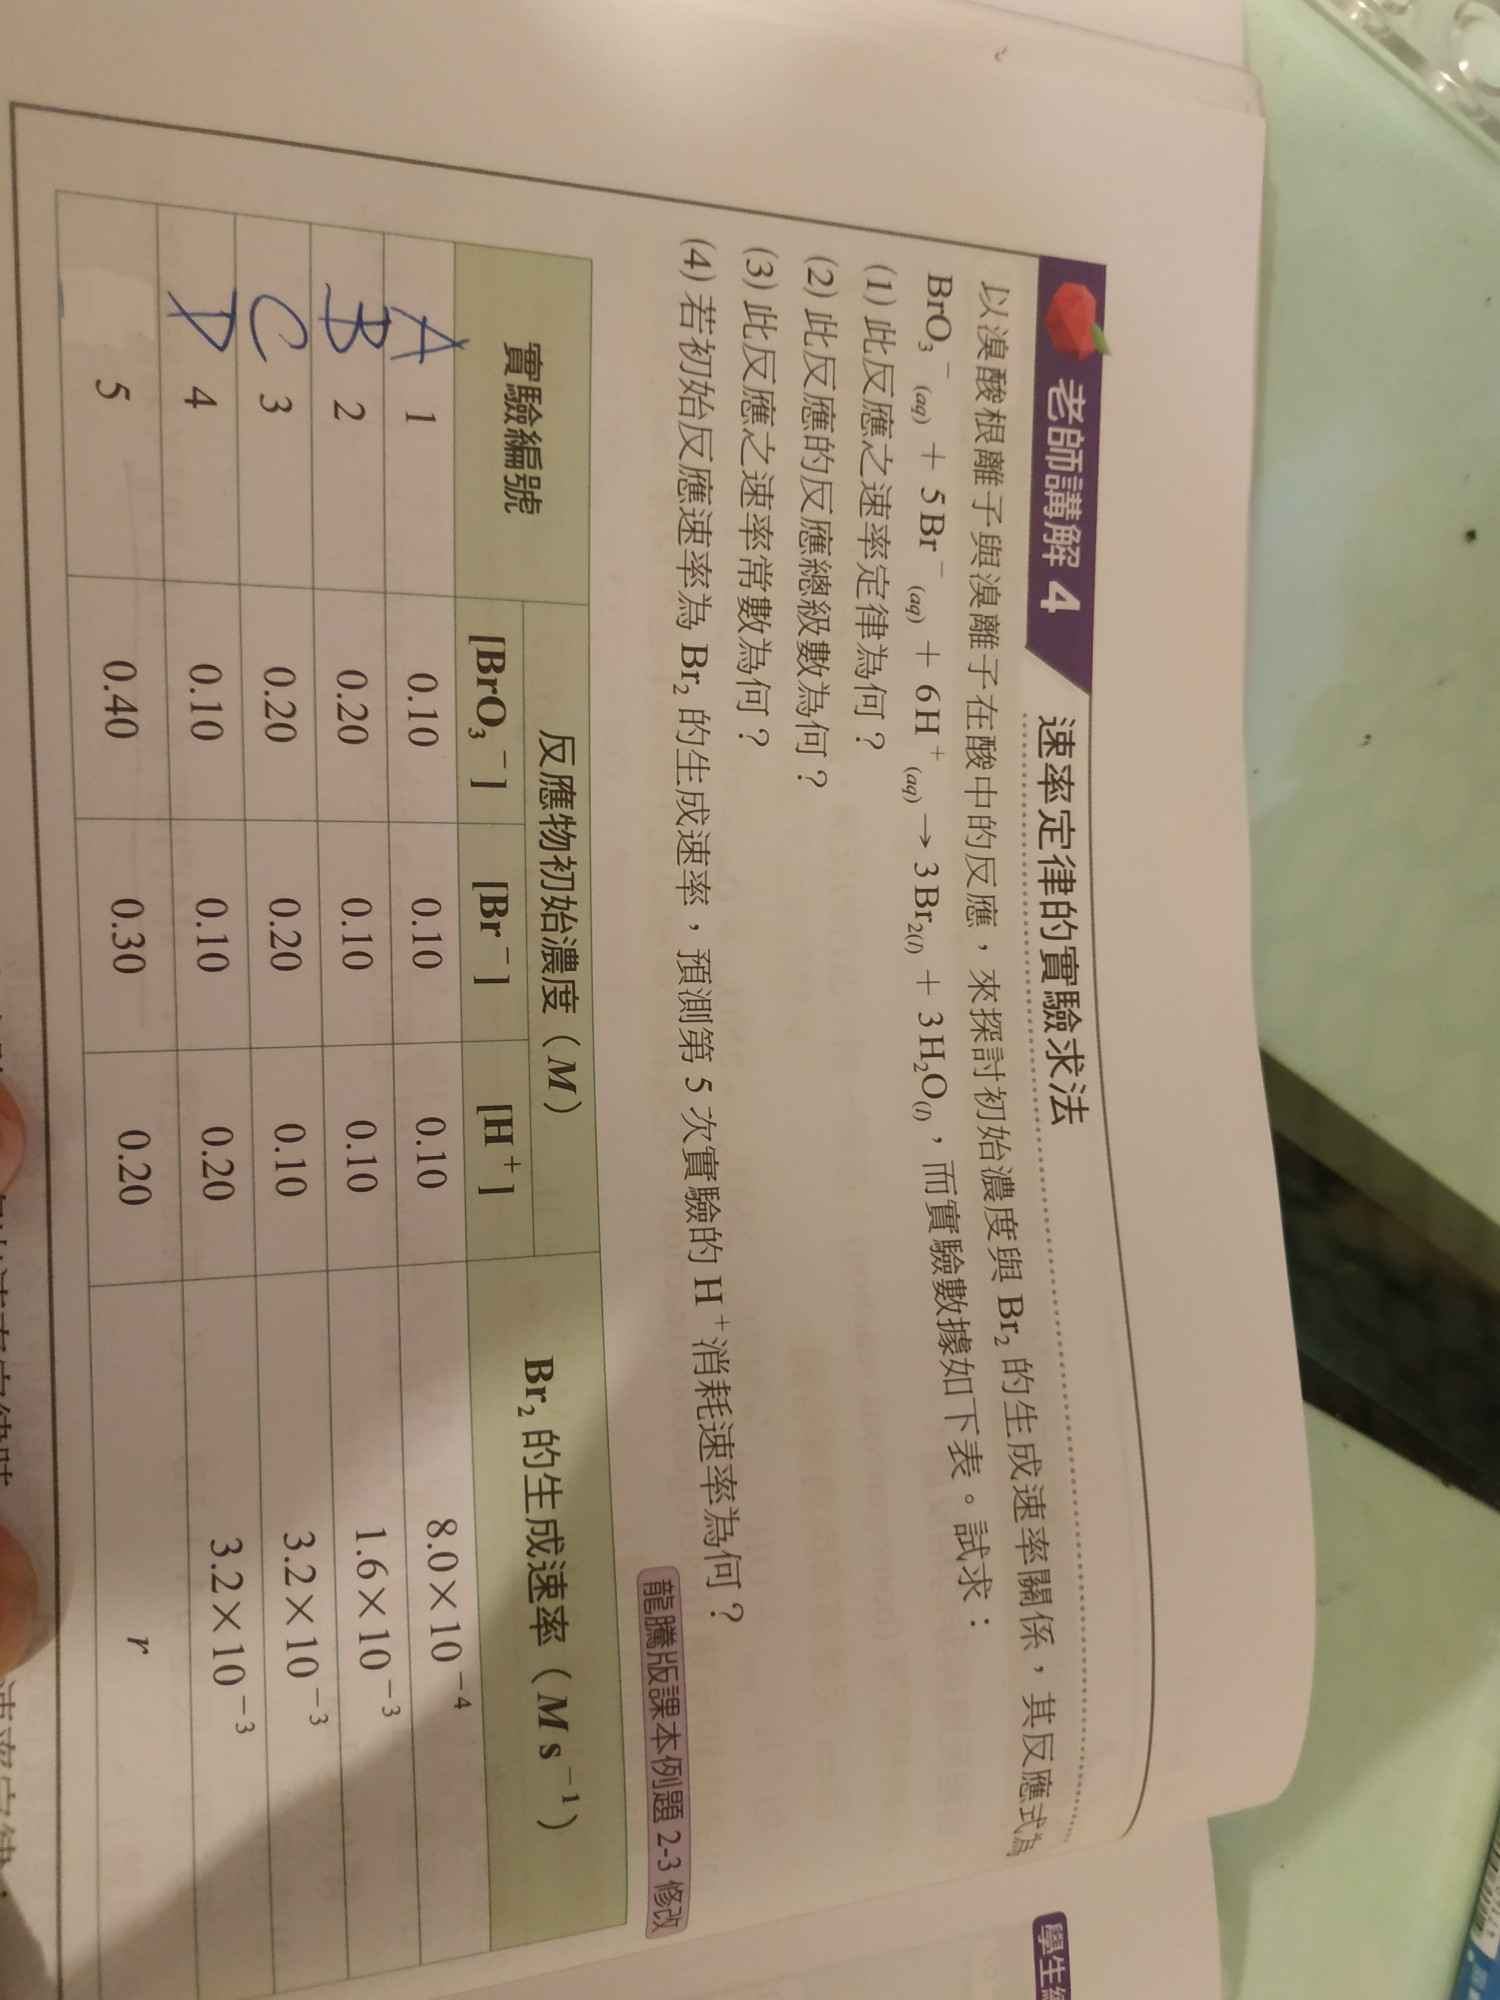 老師講解 4 速率定律的實驗求法
以溴酸根離子與溴離子在酸中的反應，來探討初始濃度與 Br₂ 的生成速率關係，其反應式為
BrO₃⁻(aq) + 5Br⁻(aq) + 6H⁺(aq) → 3Br₂(l) + 3H₂O(l)，而實驗數據如下表。試求：
(1) 此反應之速率定律為何？
(2) 此反應的反應總級數為何？
(3) 此反應之速率常數為何？
(4) 若初始反應速率為 Br₂ 的生成速率，預測第 5 次實驗的 H⁺ 消耗速率為何？
龍騰版課本例題 2-3 修改
實驗編號 反應物初始濃度（M） Br₂ 的生成速率（M s⁻¹）
[BrO₃⁻] [Br⁻] [H⁺]
A 1 0.10 0.10 0.10 8.0×10⁻⁴
B 2 0.20 0.10 0.10 1.6×10⁻³
C 3 0.20 0.20 0.10 3.2×10⁻³
D 4 0.10 0.10 0.20 3.2×10⁻³
5 0.40 0.30 0.20 r